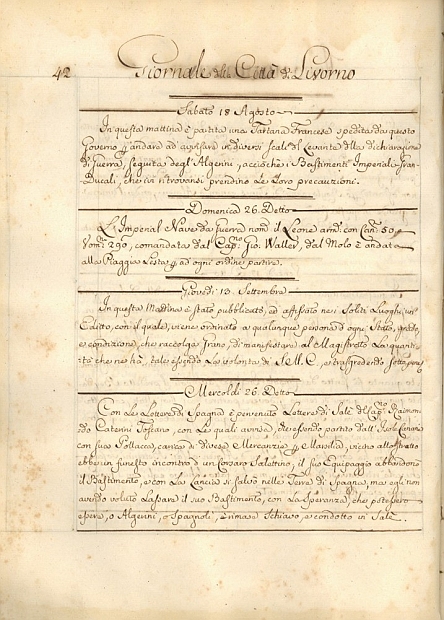 42 Giornale della Città di Livorno
Sabato 18 Agosto
In questa mattina è partita una Tartana Francese spedita da questo
Governo p andare ad avvisare in diversi Scali del Levante della dichiarazione
di Guerra, seguita degl' Algerini, acciò che i Bastimenti Imperiali Gran
Ducali, che ivi ritrovansi prendino le loro precauzioni.
Domenica 26. Detto
L'Imperial Nave da guerra nom. il Leone arm. con Can. 50
Uom. 290, comandata dal Cap. Gio. Waller, dal Molo è andata
alla Piaggia Lesta p ad ogni ordine partire.
Giovedì 13. Settembre
In questa Mattina è stato pubblicato, ed affissato nei Soliti Luoghi, un
Editto, con il quale, viene ordinato a qualunque persona d'ogni Stato, grado,
e condizione, che raccolga Grano, di manifestare al Magistrato La quanti-
tà che ne ha, tale essendo La volontà di S.M.C., e trasgredendo sotto pene
Mercoldì 26. Detto
Con le Lettere di Spagna è pervenuto Lettere di Salè del Cap. Raimon-
do Caterini Toscano, con Le quali avvisa, che essendo partito dall'Isole Canarie
con sua Pollacca, carico di diverse Mercanzie p Marsilia, vicino allo Stretto
ebbe un funesto incontro d'un Corsaro Salettino, il suo Equipaggio abbandonò
il Bastimento, e con La Lancia si salvò nelle Terre di Spagna, ma egli non
avendo voluto Lassare il suo Bastimento, con La Speranza, che potessero
essere, o Algerini, o Spagnoli, è rimasto Schiavo, e condotto in Salè.